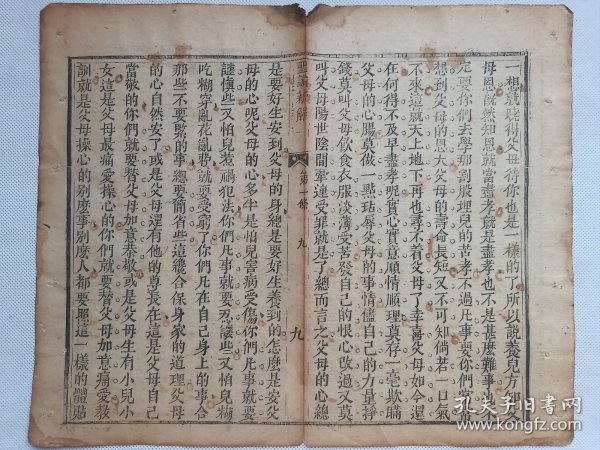 一想就曉得父母待你也是一樣的了所以說養兒方知父
母恩既然知恩就當盡孝就是盡孝也不是甚麼難事也
定要你們去學那割股埋兒的苦孝不過凡事要你們
想到父母的恩大父母的壽命長短又不可知倘若一口氣
不來這就天上地下再也尋不着父母了幸喜父母如今還
在何得不及早盡孝呢實心實意順情順理莫存一毫欺瞞
父母的心腸莫做一點玷辱父母的事情儘自己的力量掙
錢莫叫父母飲食衣服淡薄受苦發自己的恨心改過又莫
叫父母陽世陰間牽連受罪就是了總而言之父母的心總
聖諭 解
第一條
九
九
是要好生安到父母的身總是要好生養到的怎麼是安父
母的心呢父母的心多半是怕兒害病受傷你們凡事就要
謹慎些又怕兒惹禍犯法你們凡事就要忍讓些又怕兒糊
吃糊穿亂花亂費就要受窮了你們凡在自己身上的事合
那些不要緊的事總要儉省些這纔合保身家的道理父母
的心自然安了或是父母還有他的尊長在這是父母自己
當敬的你們就要替父母如意恭敬或是父母生有小兒小
女這是父母最痛愛操心的你們就要替父母如意痛愛教
訓就是父母操心的別麼事別麼人都要照這一樣的體貼
孔夫子旧书网
www.kongfz.com